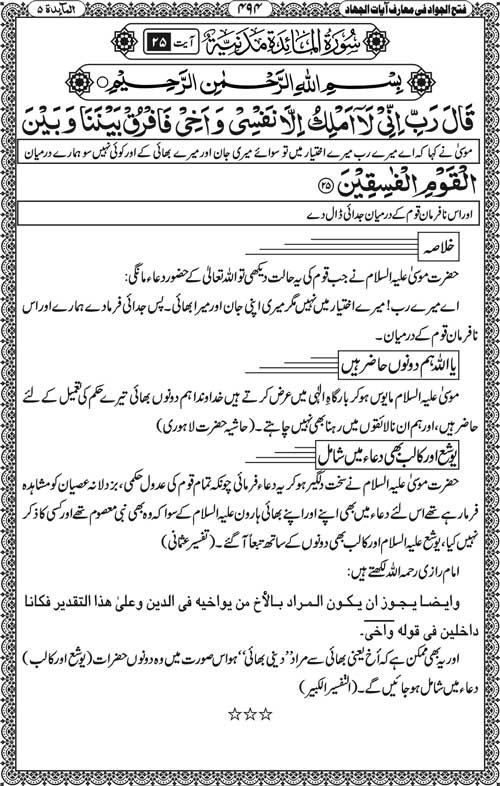 فتح الجواد فی معارف آیات الجہاد ۴۹۴ المآئدۃ ۵
سُوْرَۃُ الْمَآئِدَۃِ مَدَنِیَّۃٌ آیت ۲۵
بِسْمِ اللهِ الرَّحْمٰنِ الرَّحِیْمِ
قَالَ رَبِّ اِنِّیْ لَاۤ اَمْلِكُ اِلَّا نَفْسِیْ وَ اَخِیْ فَافْرُقْ بَیْنَنَا وَ بَیْنَ
موسیٰ نے کہا کہ اے میرے رب میرے اختیار میں تو سوائے میری جان اور میرے بھائی کے اور کوئی نہیں سو ہمارے درمیان
الْقَوْمِ الْفٰسِقِیْنَ ﴿۲۵﴾
اور اس نافرمان قوم کے درمیان جدائی ڈال دے
خلاصہ
حضرت موسیٰ علیہ السلام نے جب قوم کی یہ حالت دیکھی تو اللہ تعالیٰ کے حضور دعاء مانگی:
اے میرے رب! میرے اختیار میں نہیں مگر میری اپنی جان اور میرا بھائی۔ پس جدائی فرما دے ہمارے اور اس
نافرمان قوم کے درمیان۔
یا اللہ ہم دونوں حاضر ہیں
موسیٰ علیہ السلام مایوس ہو کر بارگاہِ الٰہی میں عرض کرتے ہیں خداوندا ہم دونوں بھائی تیرے حکم کی تعمیل کے لئے
حاضر ہیں، اور ہم ان نالائقوں میں رہنا بھی نہیں چاہتے۔ (حاشیہ حضرت لاہوری)
یوشع اور کالب بھی دعاء میں شامل
حضرت موسیٰ علیہ السلام نے سخت دلگیر ہو کر یہ دعاء فرمائی چونکہ تمام قوم کی عدول حکمی، بزدلانہ عصیان کو مشاہدہ
فرما رہے تھے اس لئے دعاء میں بھی اپنے اور اپنے بھائی ہارون علیہ السلام کے سوا کہ وہ بھی نبی معصوم تھے اور کسی کا ذکر
نہیں کیا، یوشع علیہ السلام اور کالب بھی دونوں کے ساتھ تبعاً آ گئے۔ (تفسیر عثمانی)
امام رازی رحمہ اللہ لکھتے ہیں:
وایضا یجوز ان یکون المراد بالأخ من یواخیه فی الدین وعلیٰ هذا التقدیر فکانا
داخلین فی قوله وأخی۔
اور یہ بھی ممکن ہے کہ أخ یعنی بھائی سے مراد ”دینی بھائی“ ہو اس صورت میں وہ دونوں حضرات (یوشع اور کالب)
دعاء میں شامل ہو جائیں گے۔ (التفسیر الکبیر)
☆☆☆